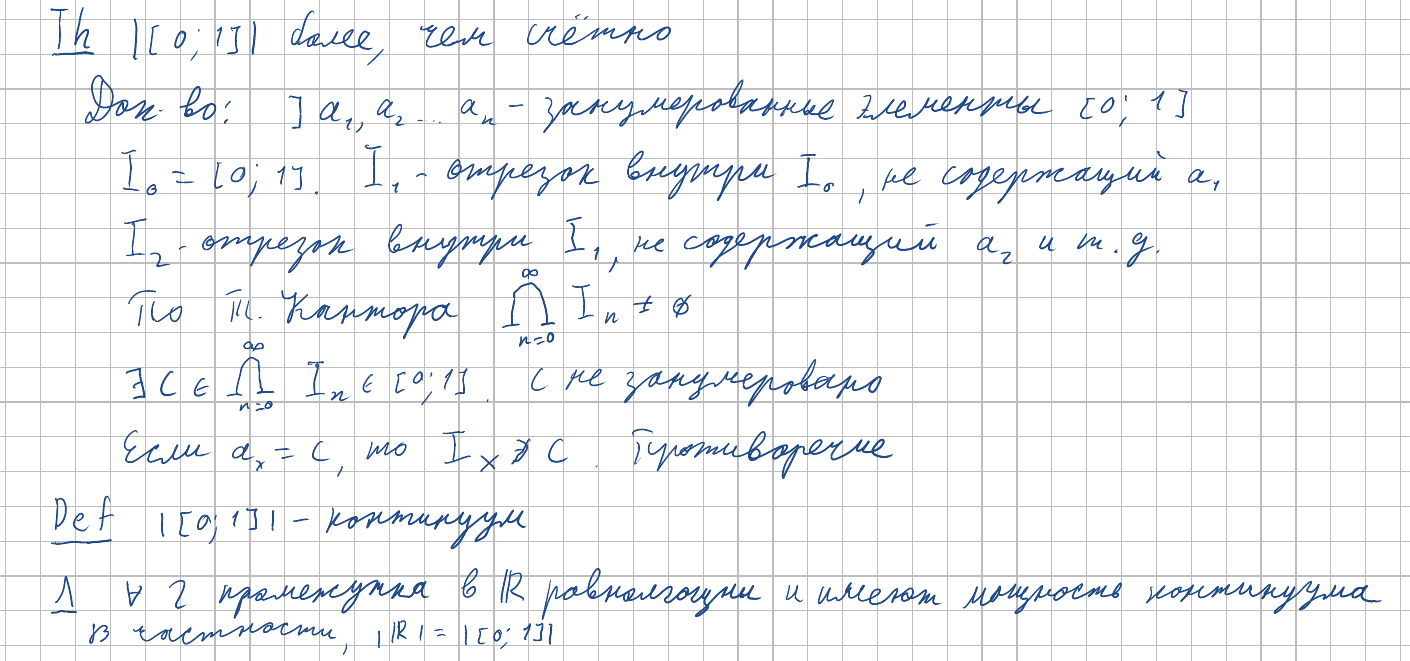 Th |[0; 1]| более, чем счётно
Док-во: ] a₁, a₂ ... aₙ - занумерованные элементы [0; 1]
I₀ = [0; 1]. I₁ - отрезок внутри I₀, не содержащий a₁
I₂ - отрезок внутри I₁, не содержащий a₂ и т.д.
По т. Кантора ⋂ₙ₌₀^∞ Iₙ ≠ ∅
∃ C ∈ ⋂ₙ₌₀^∞ Iₙ ∈ [0; 1]. C не занумеровано
Если aₓ = C, то Iₓ ∌ C. Противоречие
Def |[0; 1]| - континуум
Λ ∀ 2 промежутка в ℝ равномощны и имеют мощность континуума
В частности, |ℝ| = |[0; 1]|